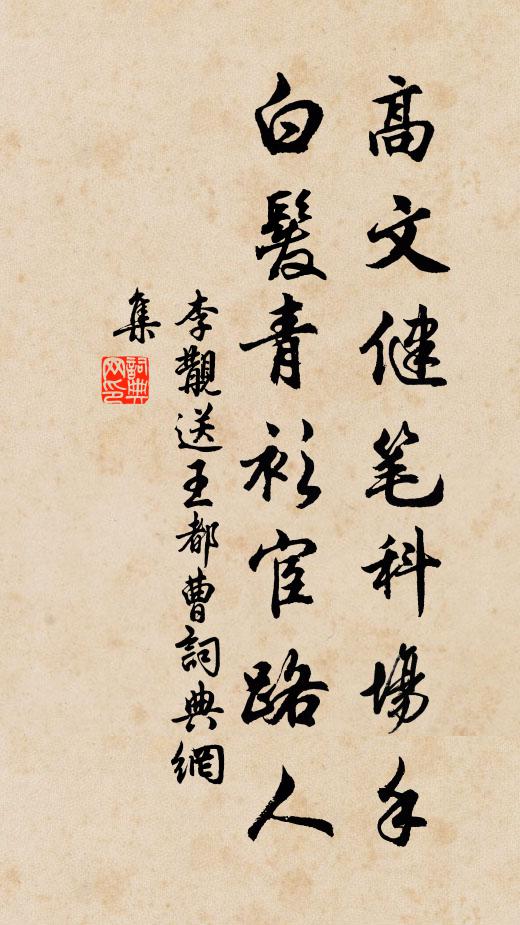 高文健笔科場手
白髮青衫宦路人
李覯送王都曹詞典網
集
詞典
网印